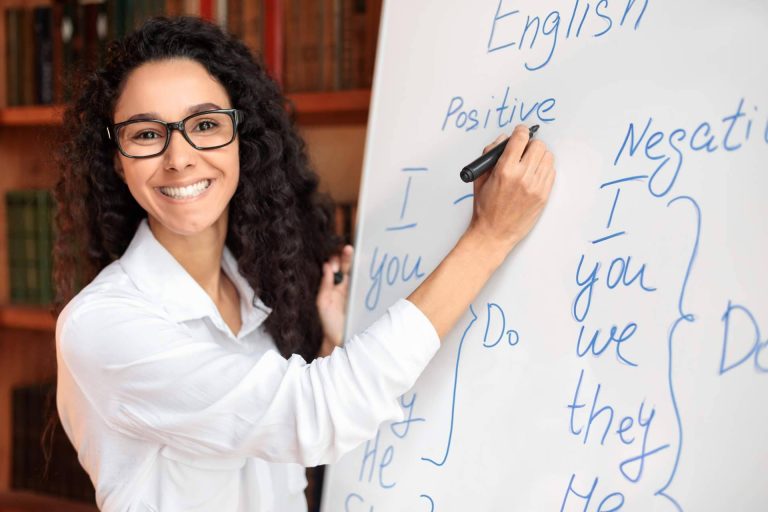 English
Positive
I
you
Do
He
Negati
I
you
we
they
He
Do